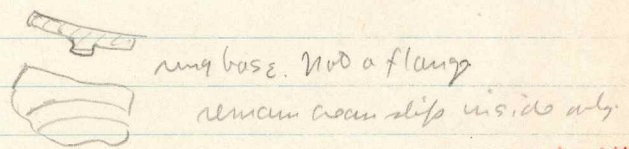 ring base. Not a flange
remain cream slip inside only.